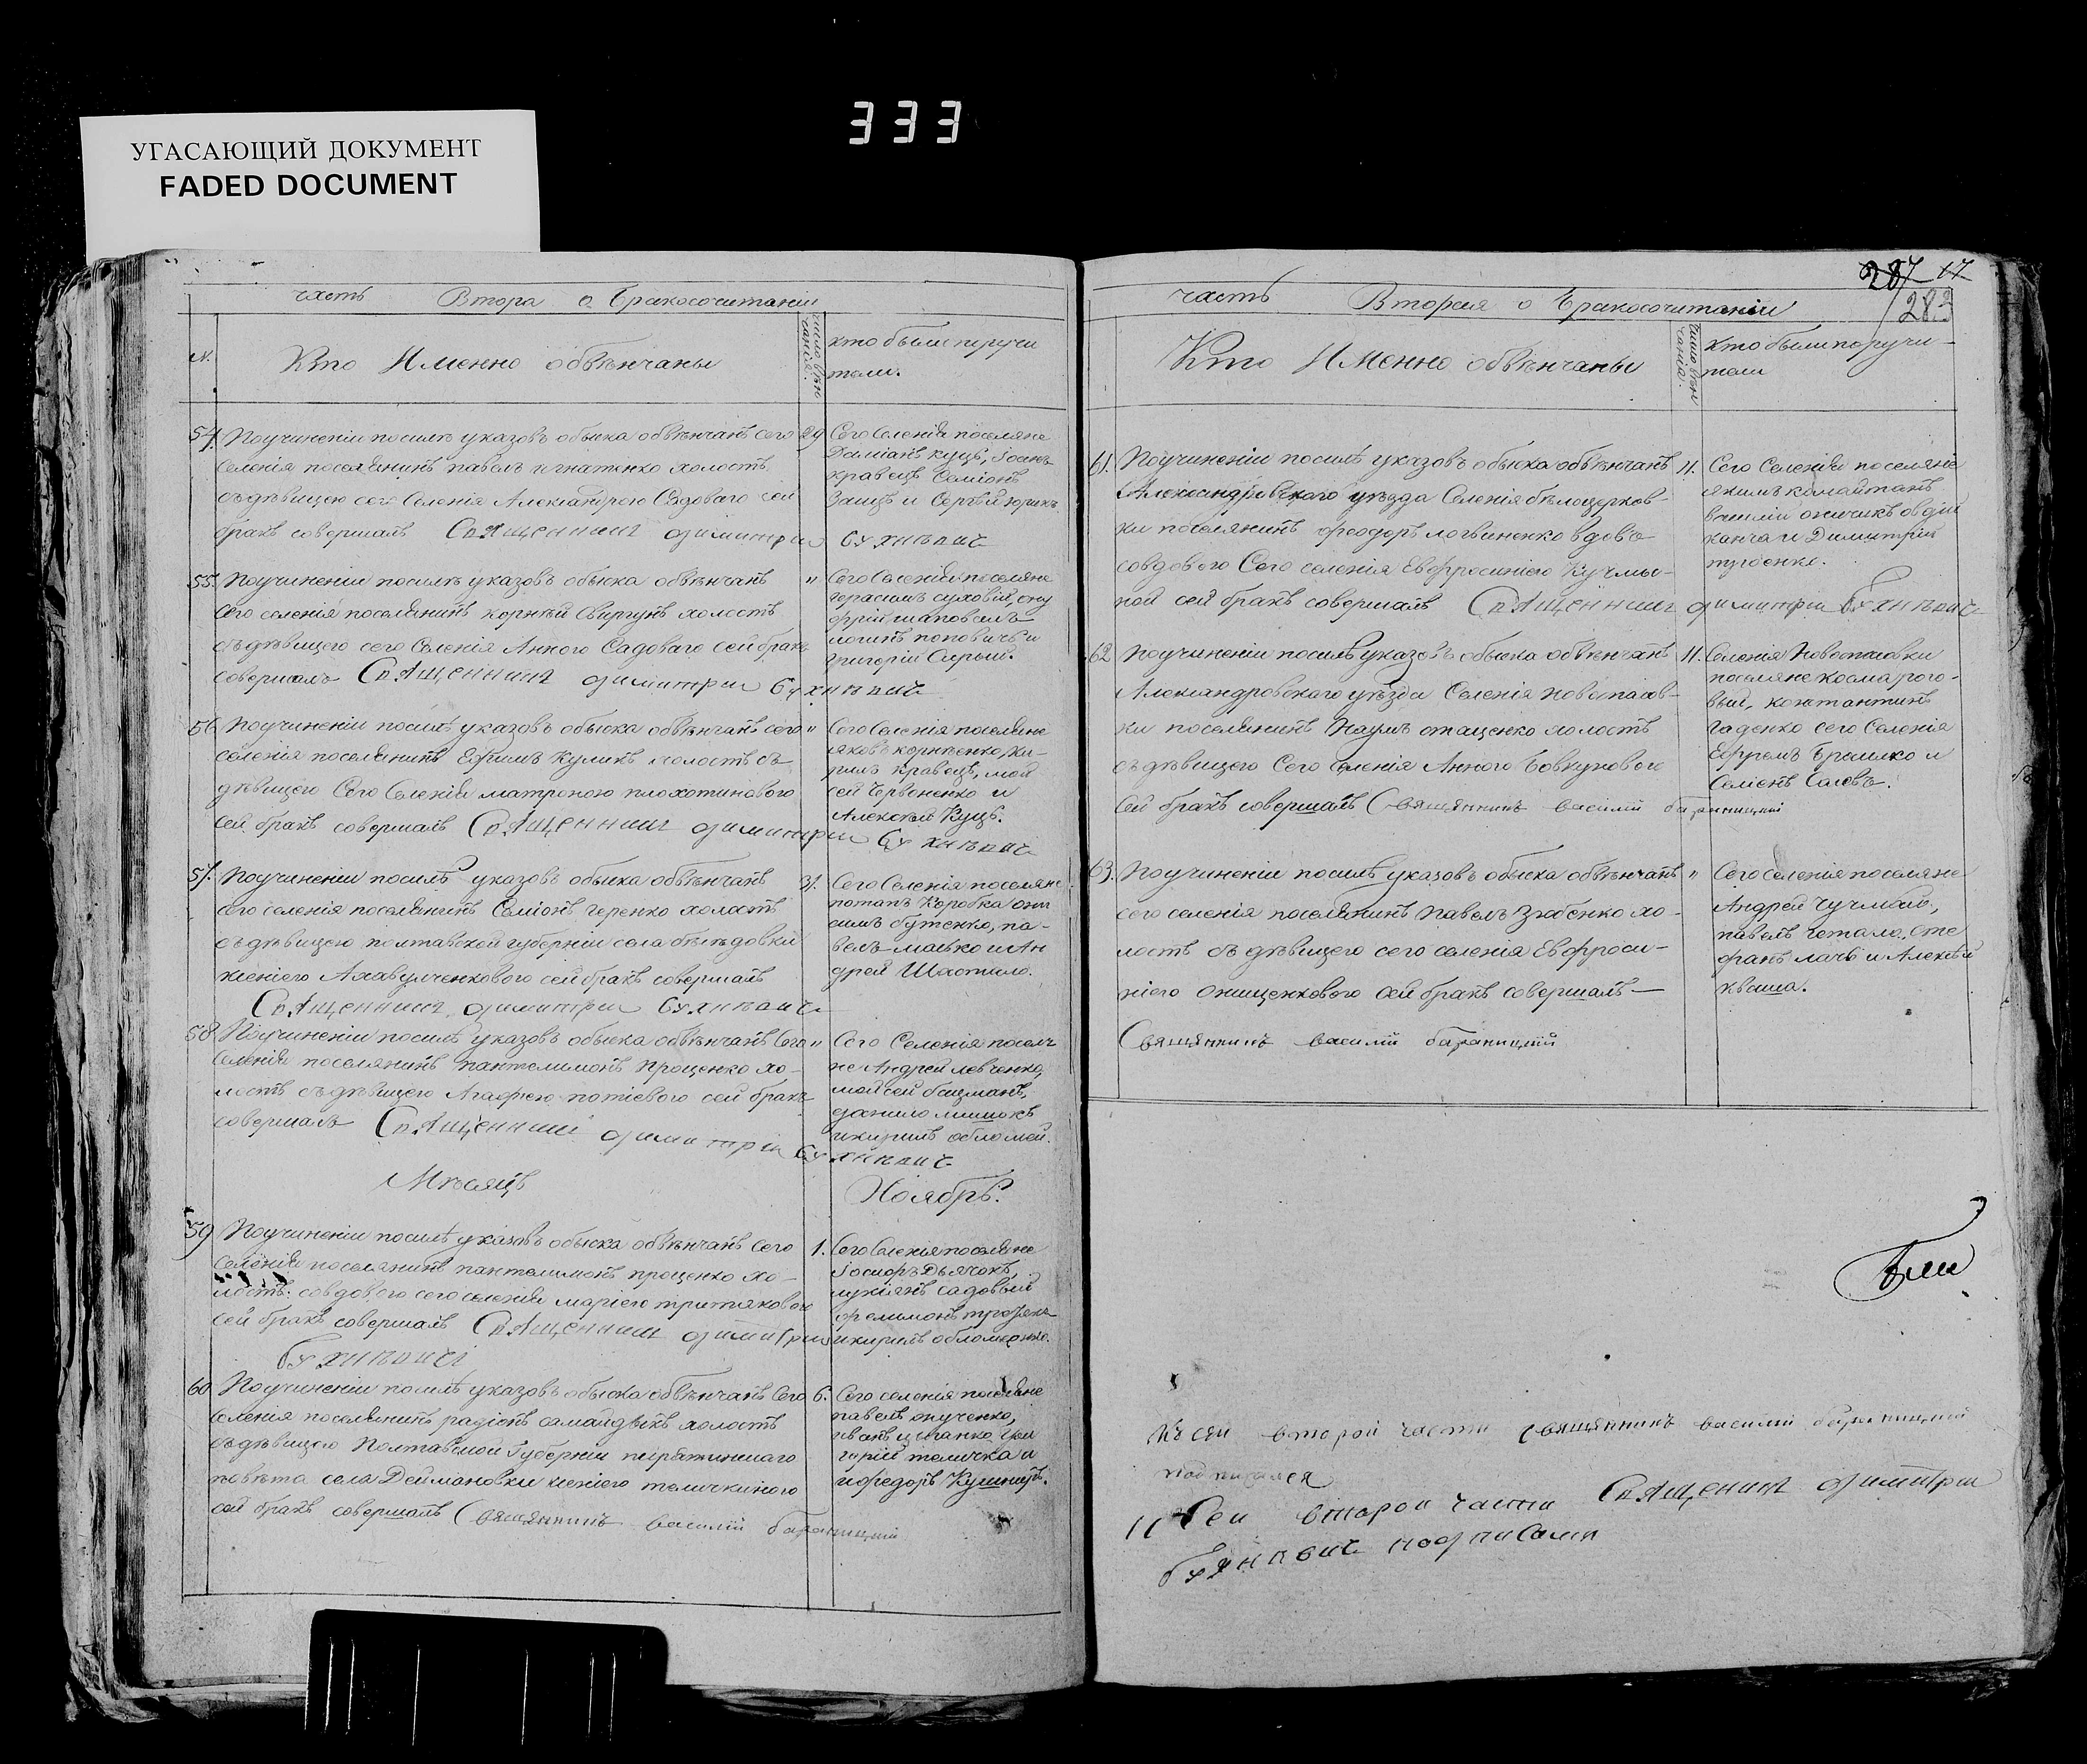 333
УГАСАЮЩИЙ ДОКУМЕНТ
FADED DOCUMENT
часть Втора о бракосочитаніи
№.
Кто Именно обвѣнчаны
число вѣнчанія.
кто были поручи
тели.
54. Поучиненіи посилѣ указовъ обыска обвѣнчанъ сего
селенія поселянинъ павелъ игнатенко холостъ
съдѣвицею сего селенія Александрою Садоваго сей
бракъ совершалъ Священникъ димитрій Бухневичъ
29
Сего Селенія поселяне
Даміанъ Куцъ, Іоанъ
кравецъ Симіонъ
Заицъ и Сергѣй юрикъ
55. Поучиненіи посилѣ указовъ обыска обвѣнчанъ
сего селенія поселянинъ корнѣй Свиргунъ холостъ
съдѣвицею сего Селенія Анною Садоваго сей бракъ
совершалъ Священникъ димитрій Бухневичъ
"
Сего Селенія поселяне
герасимъ суховій, ону
фрій шаповалъ
логинъ поповичъ и
григорій Сирый.
56 Поучиненіи посилѣ указовъ обыска обвѣнчанъ сего
селенія поселянинъ Ефимъ Куликъ холостъ съ
дѣвицею Сего Селенія матроною плохотниковою
сей бракъ совершалъ Священникъ димитрій Бухневичъ
"
Сего Селенія поселяне
яковъ корнѣенко, ки-
рилъ кравецъ, мой
сей Червоненко и
Алексѣй Куцъ.
57. Поучиненіи посилѣ указовъ обыска обвѣнчанъ
сего селенія поселянинъ Симіонъ геренко холостъ
съдѣвицею полтавской губерніи села
ксеніею сей бракъ совершалъ
Священникъ димитрій Бухневичъ
31.
Сего Селенія поселяне
потапъ Коробка они
симъ бутенко, па-
велъ малько и Ан
дрей Шостило.
58 Поучиненіи посилѣ указовъ обыска обвѣнчанъ Сего
Селенія поселянинъ пантелимонъ Проценко хо-
лостъ съдѣвицею Агафіею потіевого сей бракъ
совершалъ Священникъ димитрій Бухневичъ
"
Сего Селенія поселя
не Андрей левченко,
мойсей боцманъ,
данило мишокъ
икирилъ обломей.
Мѣсяцъ Ноябрь.
59 Поучиненіи посилѣ указовъ обыска обвѣнчанъ сего
селенія поселянинъ пантелимонъ проценко хо-
лостъ. совдовою сего селенія маріею третяковою
сей бракъ совершалъ Священникъ димитрій
Бухневичъ
1.
Сего Селенія поселяне
Іосифъ Дьячокъ,
лукіянъ садовый
филимонъ
икирилъ обломенко.
60 Поучиненіи посилѣ указовъ обыска обвѣнчанъ Сего
селенія поселянинъ радіонъ самойдюкъ холостъ
съдѣвицею Полтавской Губерніи пирятинскаго
повѣта села Деймановки ксеніею теличкиного
сей бракъ совершалъ Священникъ василій бараницкій
6.
Сего селенія поселяне
павелъ онученко,
иванъ цыганко, гри
горій теличка и
ифедоръ Кушниръ.
287 17
283
часть Вторая о бракосочитаніи
Кто Именно обвѣнчаны
число вѣнчанія.
Кто были поручи-
тели
61. Поучиненіи посилѣ указовъ обыска обвѣнчанъ
Александровского уѣзда Селенія бѣлоцерков-
ки поселянинъ феодоръ логвиненко вдовъ
совдовою Сего селенія Евфросиніею Кучмы-
ной сей бракъ совершалъ Священникъ димитрій Бухневичъ
11.
Сего Селенія поселяне
якимъ камайтанъ
василій оничикъ овдій
канча и Димитрій
62 Поучиненіи посилѣ указовъ обыска обвѣнчанъ
Александровскаго уѣзда Селенія новопасов-
ки поселянинъ Наумъ отащенко холостъ
съдѣвицею Сего селенія Анною Бовкуновою
сей бракъ совершалъ Священникъ василій бараницкій
11.
Селенія Новопасовки
поселяне косма рого-
вый, константинъ
гаденко сего Селенія
Ефремъ Ермилко и
Семенъ Саевъ.
63. Поучиненіи посилѣ указовъ обыска обвѣнчанъ
сего селенія поселянинъ Павелъ Зюбенко хо-
лостъ съдѣвицею сего селенія Евфроси-
ніею онищенкового сей бракъ совершалъ—
Священникъ василій бараницкій
"
Сего селенія поселяне
Андрей Чучмай,
павелъ четало, сте
фанъ лачъ и Алексѣй
кваша.
Къ сей второй части священникъ василій бараницкій
подписался
Къ Сей второй части Священникъ димитрій
Бухневичъ подписался